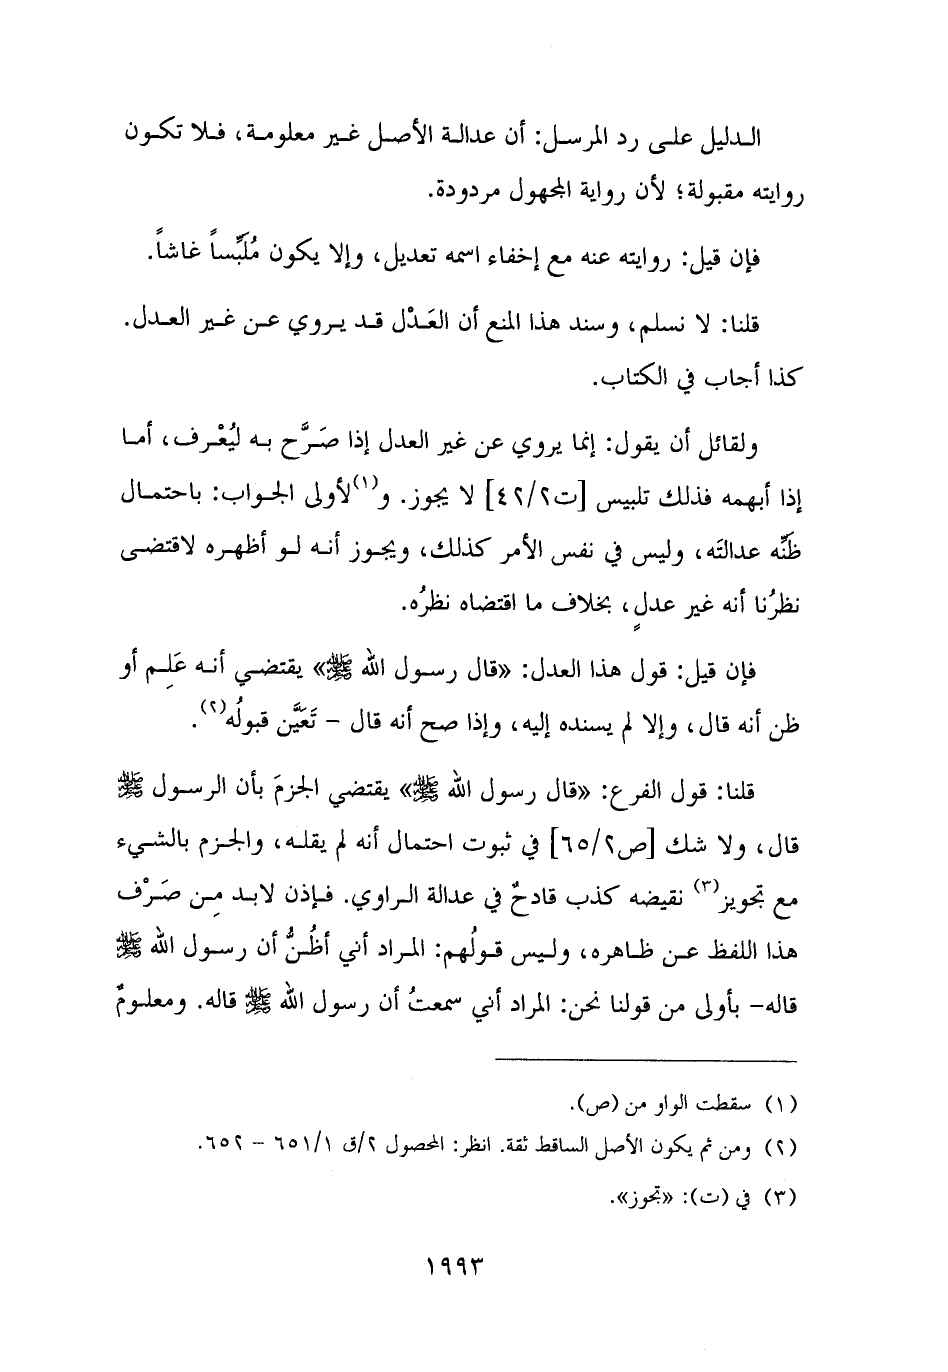 الـدليل علـى رد المرسـل: أن عدالـة الأصـل غـير معلومـة، فـلا تكـون
روايته مقبولة؛ لأن رواية المجهول مردودة.
فإن قيل: روايته عنه مع إخفاء اسمه تعديل، وإلا يكون مُلَبِّساً غاشاً.
قلنا: لا نسلم، وسند هذا المنع أن العَدْل قـد يـروي عـن غـير العـدل.
كذا أجاب في الكتاب.
ولقائل أن يقول: إنما يروي عن غير العدل إذا صَرَّح بـه ليُعْـرف، أمـا
إذا أبهمه فذلك تلبيس [ت٤٢/٢] لا يجوز. و(١)لأولى الجـواب: باحتمـال
ظَنِّه عدالتَه، وليس في نفس الأمر كذلك، ويجـوز أنـه لـو أظهـره لاقتضـى
نظرُنا أنه غير عدلٍ، بخلاف ما اقتضاه نظرُه.
فإن قيل: قول هذا العدل: «قال رسول الله ﷺ» يقتضـي أنـه عَلِـم أو
ظن أنه قال، وإلا لم يسنده إليه، وإذا صح أنه قال – تَعَيَّن قبولُه(٢).
قلنا: قول الفرع: «قال رسول الله ﷺ» يقتضي الجزمَ بأن الرسـول ﷺ
قال، ولا شك [ص٦٥/٢] في ثبوت احتمال أنه لم يقلـه، والجـزم بالشـيء
مع تجويز(٣) نقيضه كذب قادحٌ في عدالة الـراوي. فـإذن لابـد مِـن صَـرْف
هذا اللفظ عـن ظـاهره، ولـيس قـولُهم: المـراد أني أظُـنُّ أن رسـول الله ﷺ
قاله– بأولى من قولنا نحن: المراد أني سمعتُ أن رسول الله ﷺ قاله. ومعلـومٌ
(١) سقطت الواو من (ص).
(٢) ومن ثم يكون الأصل الساقط ثقة. انظر: المحصول ٢/ق ٦٥١/١ – ٦٥٢.
(٣) في (ت): «تجوز».
١٩٩٣